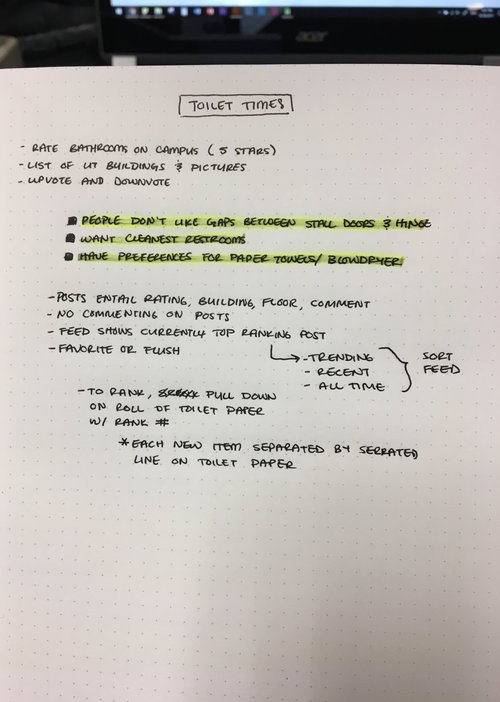 acer
TOILET TIMES
- RATE BATHROOMS ON CAMPUS (5 STARS)
- LIST OF UT BUILDINGS & PICTURES
- UPVOTE AND DOWNVOTE
■ PEOPLE DON'T LIKE GAPS BETWEEN STALL DOORS & HINGE
■ WANT CLEANEST RESTROOMS
■ HAVE PREFERENCES FOR PAPER TOWELS/BLOWDRYER
- POSTS ENTAIL RATING, BUILDING, FLOOR, COMMENT
- NO COMMENTING ON POSTS
- FEED SHOWS CURRENTLY TOP RANKING POST
- FAVORITE OR FLUSH
- TRENDING
- RECENT
- ALL TIME
SORT
FEED
- TO RANK, PULL DOWN
ON ROLL OF TOILET PAPER
W/ RANK #
* EACH NEW ITEM SEPARATED BY SERRATED
LINE ON TOILET PAPER